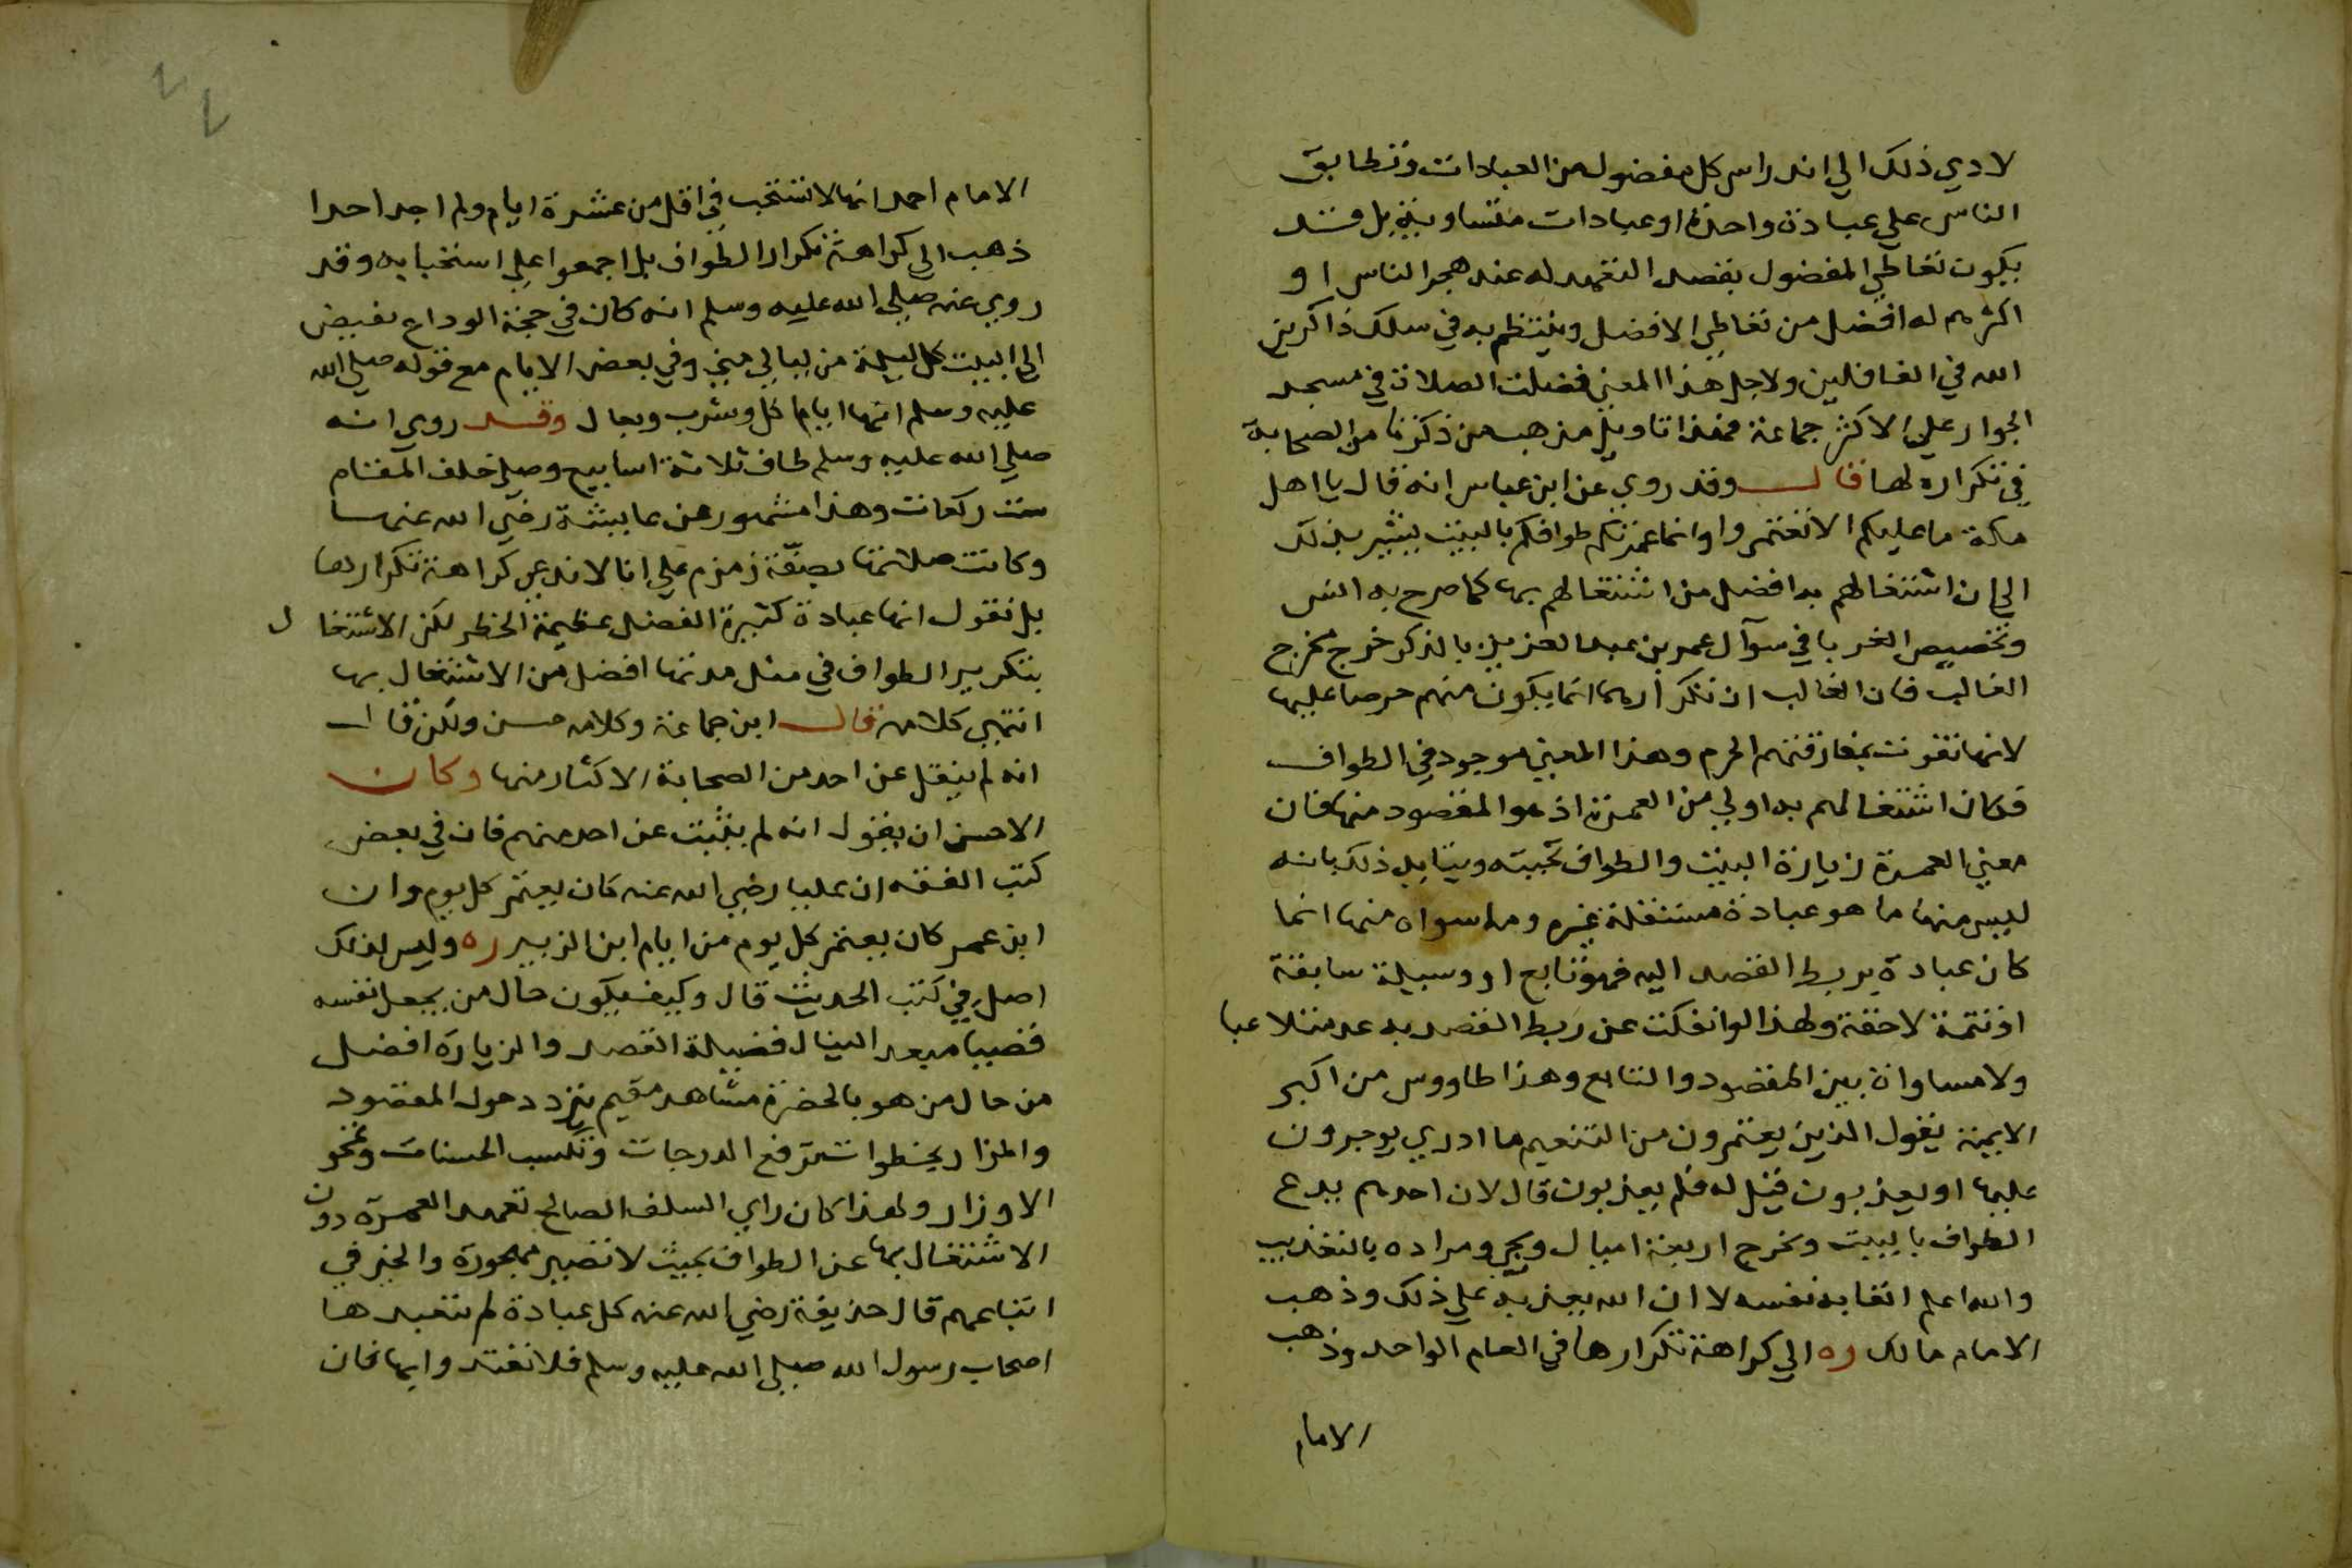 لادي ذلك الي اندراس كل مفضول من العبادات وتطابق
الناس علي عبادة واحدة او عبادات متساوية بل قد
يكون تعاطي المفضول بقصد التعهد له عند هجر الناس او
اكثرهم له افضل من تعاطي الافضل وينتظم به في سلك ذاكرين
الله في الغافلين ولاجل هذا المعني فضلت الصلاة في مسجد
الجوار علي الاكثر جماعة فهذا تاويل مذهب من ذكرنا من الصحابة
في تكراره لها قال وقد روي عن ابن عباس انه قال يا اهل
مكة ما عليكم الا تعتمروا وانما عمرتكم طوافكم بالبيت يشير بذلك
الي ان اشتغالهم به افضل من اشتغالهم بها كما صرح به انس
وتخصيص الغربا في سوآل عمر بن عبد العزيز بالذكر خرج مخرج
الغالب فان الغالب ان تكرارها انما يكون منهم حرصا عليها
لانها تفوت بمفارقتهم الحرم وهذا المعني موجود في الطواف
فكان اشتغالهم به اولي من العمرة اذ هو المقصود منها فان
معني العمرة زيارة البيت والطواف تحيته ويتايد ذلك بانه
ليس منها ما هو عبادة مستقلة غيره وما سواه منها انما
كان عبادة بربط القصد اليه فهو تابع او وسيلة سابقة
او تتمة لاحقة ولهذا لو انفكت عن ربط القصد به عد متلاعبا
ولا مساواة بين المقصود والتابع وهذا طاووس من اكبر
الايمة يقول الذين يعتمرون من التنعيم ما ادري يوجرون
عليها او يعذبون قيل له فلم يعذبون قال لان احدهم يدع
الطواف بالبيت ويخرج اربعة اميال ويجي ومراده بالتعذيب
والله اعلم اتعابه نفسه لا ان الله يعذبه علي ذلك وذهب
الامام مالك ره الي كراهة تكرارها في العام الواحد وذهب
الامام
الامام احمد انها لا تستحب في اقل من عشرة ايام ولم اجد احدا
ذهب الي كراهة تكرار الطواف بل اجمعوا علي استحبابه وقد
روي عنه صلي الله عليه وسلم انه كان في حجة الوداع يفيض
الي البيت كل ليلة من ليالي مني وفي بعض الايام مع قوله صلي الله
عليه وسلم انها ايام اكل وشرب وبعال وقد روي انه
صلي الله عليه وسلم طاف ثلاثة اسابيع وصلي خلف المقام
ست ركعات وهذا مشهور عن عايشة رضي الله عنها
وكانت صلاتها بصفة زمزم علي انا لا ندعي كراهة تكرارها
بل نقول انها عبادة كثيرة الفضل عظيمة الخطر لكن الاشتغال
بتكرير الطواف في مثل مدتها افضل من الاشتغال بها
انتهي كلامه قال ابن جماعة وكلامه حسن ولكن قال
انه لم ينقل عن احد من الصحابة الاكثار منها وكان
الاحسن ان يقول انه لم يثبت عن احد منهم فان في بعض
كتب الفقه ان عليا رضي الله عنه كان يعتمر كل يوم وان
ابن عمر كان يعتمر كل يوم من ايام ابن الزبير ره وليس لذلك
اصل في كتب الحديث قال وكيف يكون حال من يجعل نفسه
قصيا مبعدا لينال فضيلة القصد والزيارة افضل
من حال من هو بالحضرة مشاهد مقيم يتردد حول المقصود
والمزار بخطوات ترفع الدرجات وتكسب الحسنات وتمحو
الاوزار ولهذا كان راي السلف الصالح تعهد العمرة دون
الاشتغال بها عن الطواف بحيث لا تصير مهجورة والخير في
اتباعهم قال حذيفة رضي الله عنه كل عبادة لم تتعبدها
اصحاب رسول الله صلي الله عليه وسلم فلا تعتد وابها فان